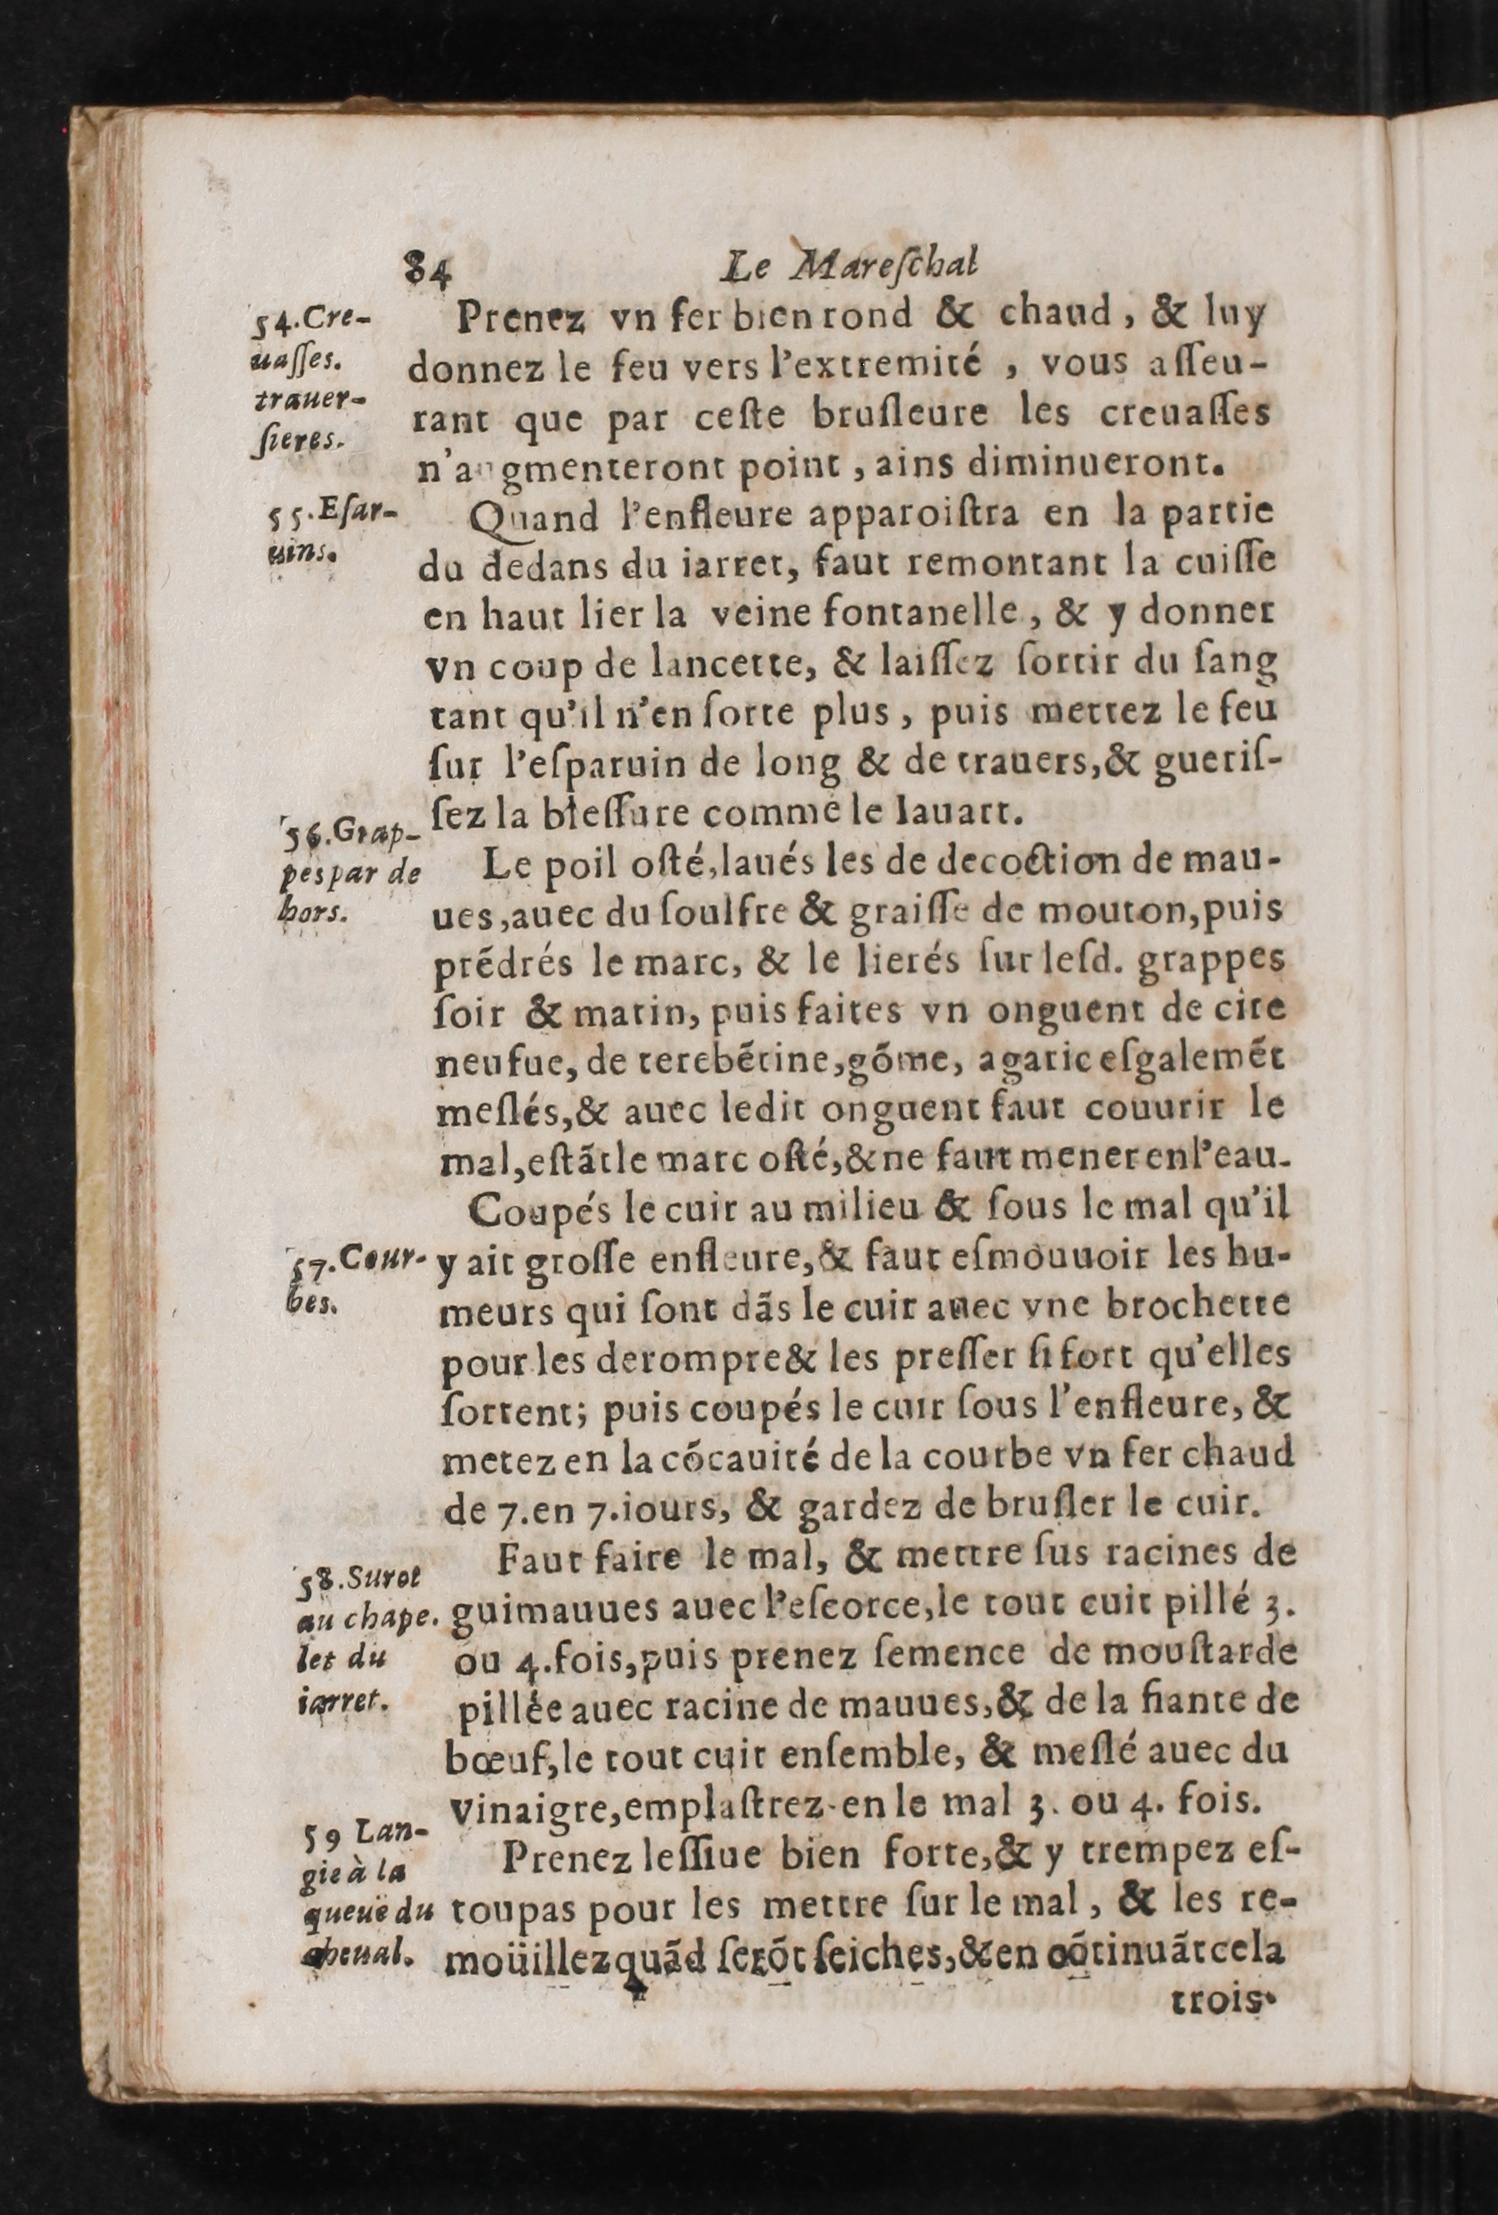 84 Le Mareſchal
54. Cre-
uaſſes.
trauer-
ſieres.
Prenez vn fer bien rond & chaud, & luy
donnez le feu vers l'extremité, vous aſſeu-
rant que par ceſte bruſleure les creuaſſes
n'augmenteront point, ains diminueront.
55. Eſar-
uins.
Quand l'enfleure apparoiſtra en la partie
du dedans du iarret, faut remontant la cuiſſe
en haut lier la veine fontanelle, & y donner
vn coup de lancette, & laiſſez ſortir du ſang
tant qu'il n'en ſorte plus, puis mettez le feu
ſur l'eſparuin de long & de trauers, & gueriſ-
ſez la bleſſure comme le Iauart.
56. Grap-
pes par de
hors.
Le poil oſté, laués les de decoction de mau-
ues, auec du ſoulfre & graiſſe de mouton, puis
prẽdrés le marc, & le lierés ſur leſd. grappes
ſoir & matin, puis faites vn onguent de cire
neufue, de terebẽtine, gõme, agaric eſgalemẽt
meſlés, & auec ledit onguent faut couurir le
mal, eſtãt le marc oſté, & ne faut mener en l'eau.
57. Cour-
bes.
Coupés le cuir au milieu & ſous le mal qu'il
y ait groſſe enfleure, & faut eſmouuoir les hu-
meurs qui ſont dãs le cuir auec vne brochette
pour les derompre & les preſſer ſi fort qu'elles
ſortent; puis coupés le cuir ſous l'enfleure, &
metez en la cõcauité de la courbe vn fer chaud
de 7. en 7. iours, & gardez de bruſler le cuir.
58. Surot
au chape.
let du
iarret.
Faut faire le mal, & mettre ſus racines de
guimauues auec l'eſcorce, le tout cuit pillé 3.
ou 4. fois, puis prenez ſemence de mouſtarde
pillée auec racine de mauues, & de la fiante de
bœuf, le tout cuit enſemble, & meſlé auec du
vinaigre, emplaſtrez-en le mal 3. ou 4. fois.
59 Lan-
gie à la
queuë du
cheual.
Prenez leſſiue bien forte, & y trempez eſ-
toupas pour les mettre ſur le mal, & les re-
moüillez quãd ſerõt ſeiches, & en cõtinuãt cela
trois